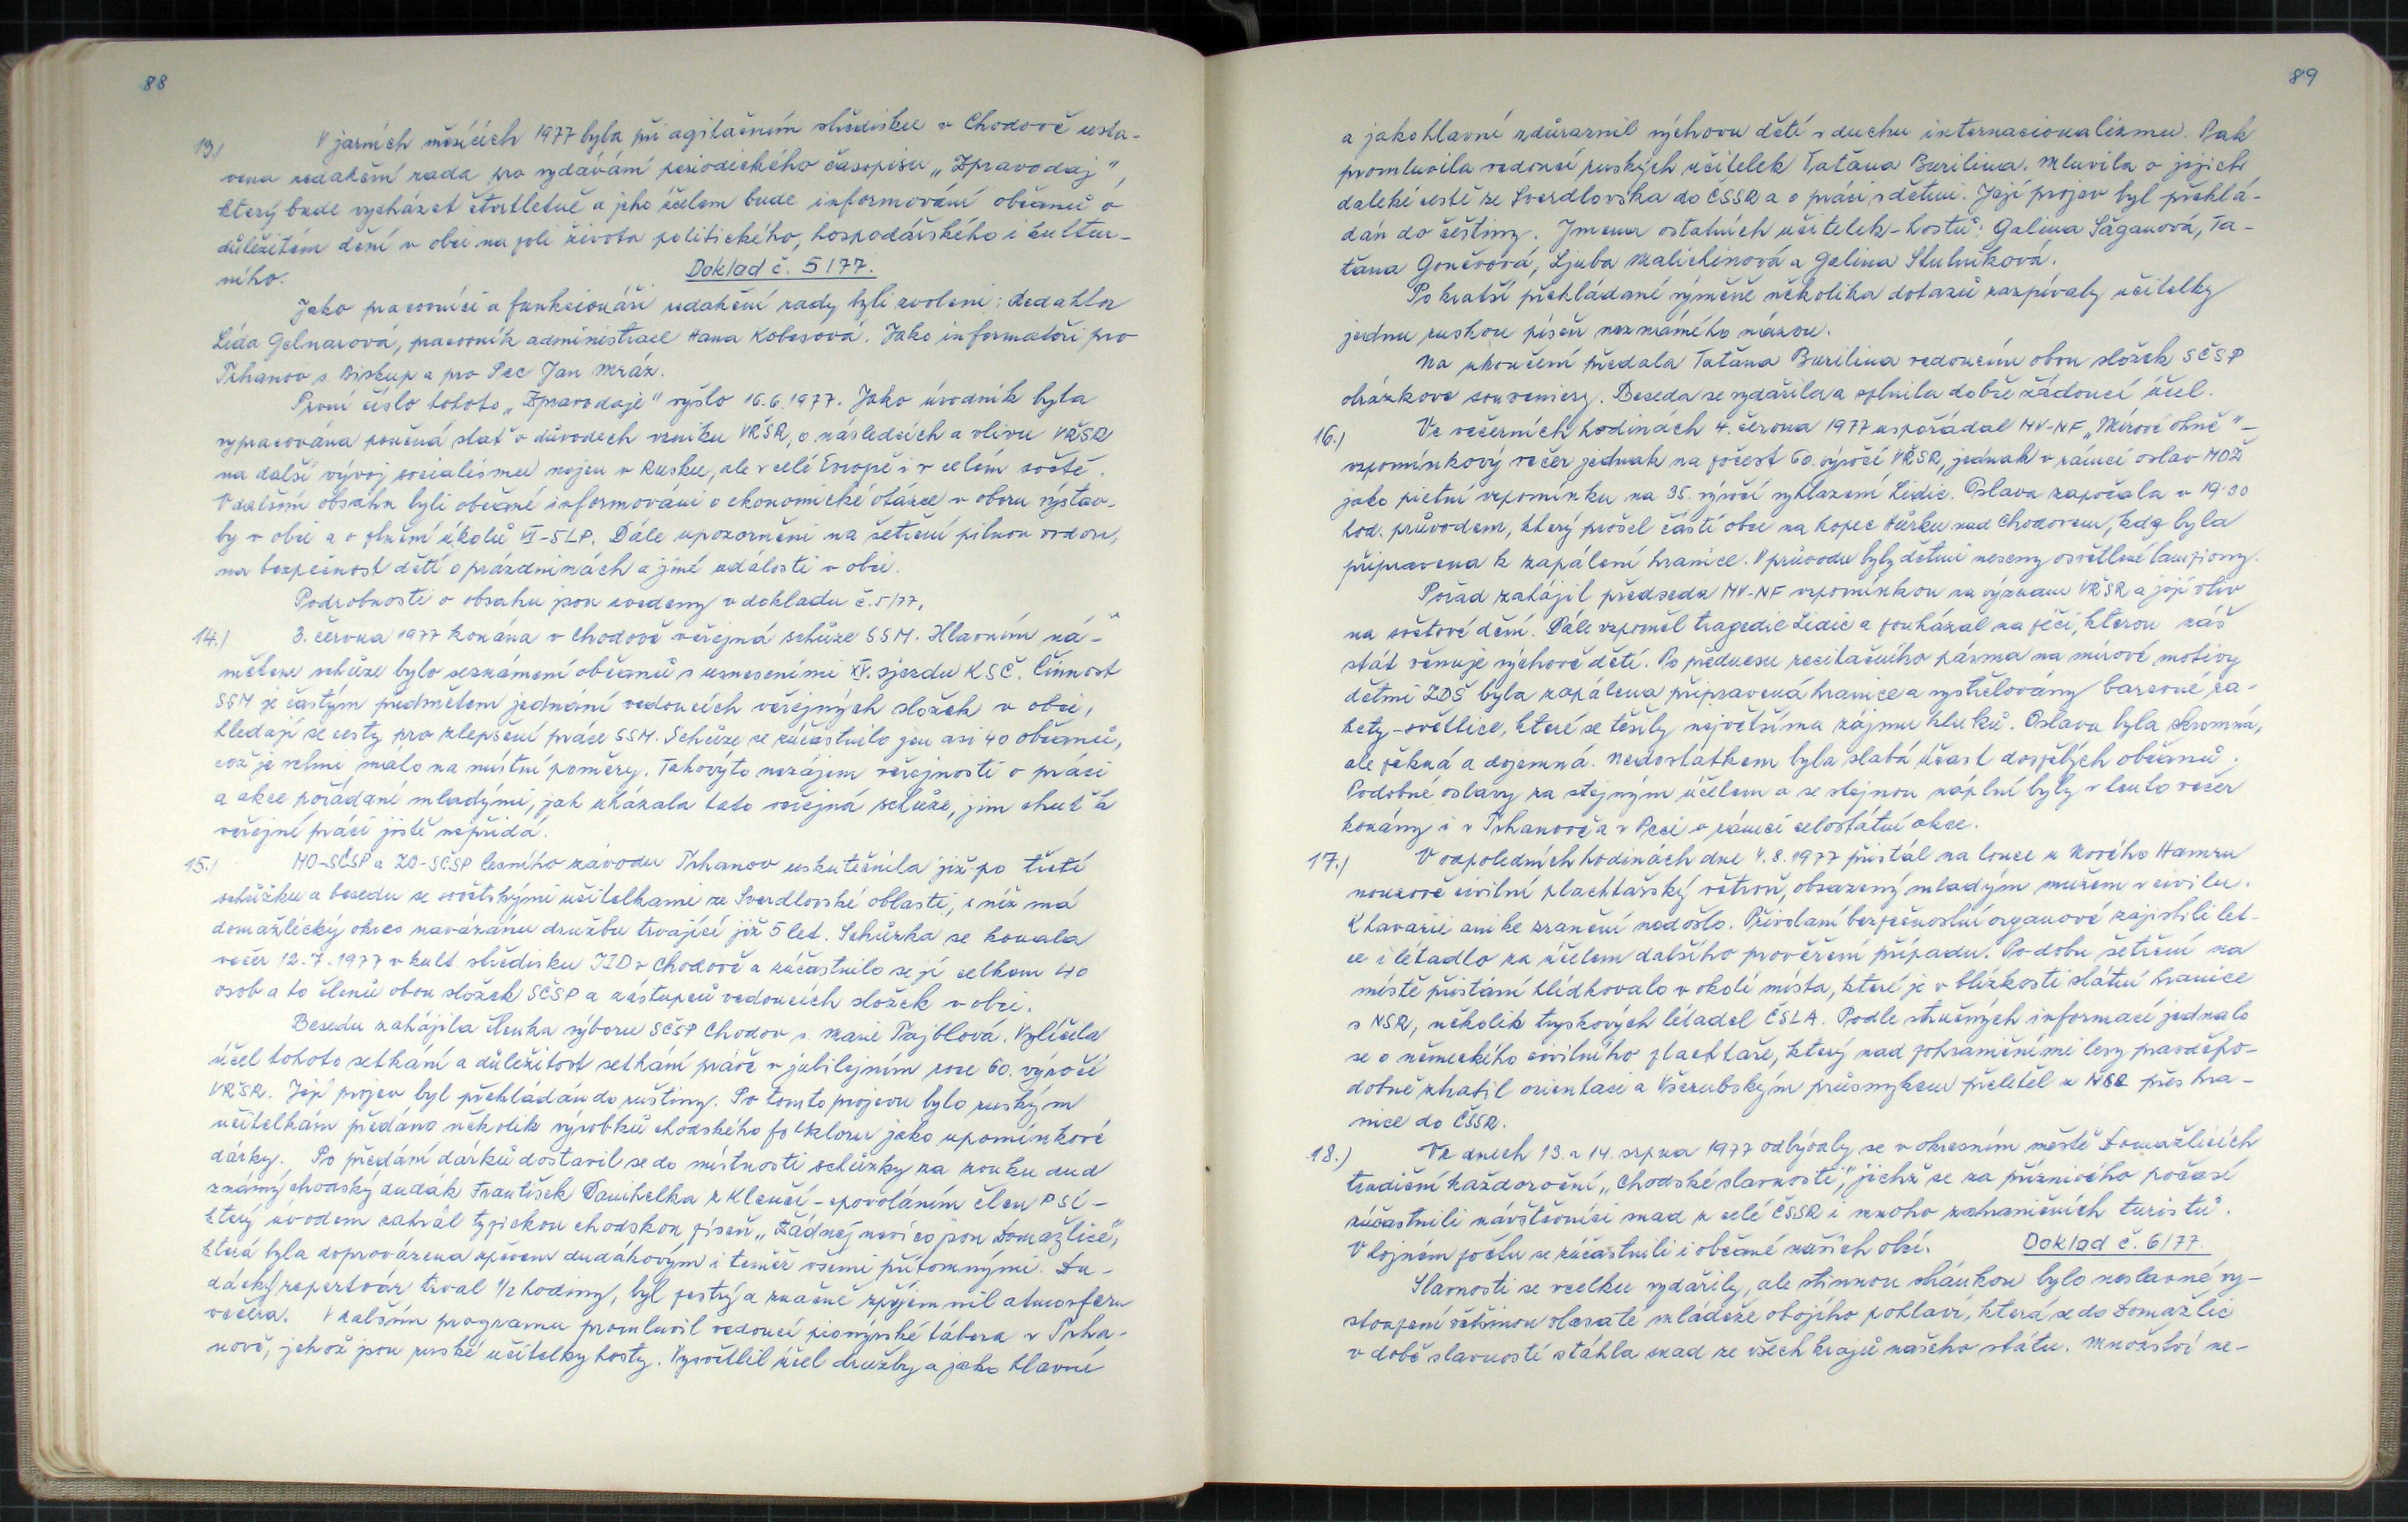 88
13.) V jarních měsících 1977 byla při agitačním středisku v Chodově usta-
vena redakční rada pro vydávání periodického časopisu „Zpravodaj",
který bude vycházet čtvrtletně a jeho účelem bude informování občanů o
důležitém dění v obci na poli života politického, hospodářského i kultur-
ního. Doklad č. 5/77.
Jako pracovníci a funkcionáři redakční rady byli zvoleni: Redaktor
Lída Gelnarová, pracovník administrace Hana Kobesová. Jako informatoři pro
Trhanov s. Biskup a pro Pec Jan Mráz.
První číslo tohoto „Zpravodaje" vyšlo 16.6.1977. Jako úvodník byla
vypracována poučná stať o důvodech vzniku VŘSR, o následcích a vlivu VŘSR
na další vývoj socialismu nejen v Rusku, ale v celé Evropě i v celém světě.
V dalším obsahu byli občané informováni o ekonomické otázce v oboru výstav-
by v obci a o plnění úkolů VI-5LP. Dále upozorněni na šetření pitnou vodou,
na bezpečnost dětí o prázdninách a jiné události v obci.
Podrobnosti o obsahu jsou uvedeny v dokladu č. 5/77.
14.) 3. června 1977 konána v Chodově veřejná schůze SSM. Hlavním ná-
mětem schůze bylo seznámení občanů s usneseními XV. sjezdu KSČ. Činnost
SSM je častým předmětem jednání vedoucích veřejných složek v obci,
hledají se cesty pro zlepšení práce SSM. Schůze se zúčastnilo jen asi 40 občanů,
což je velmi málo na místní poměry. Takovýto nezájem veřejnosti o práci
a akce pořádané mladými, jak ukázala tato veřejná schůze, jim chuť k
veřejné práci jistě nepřidá.
15.) MO-SČSP a ZO-SČSP lesního závodu Trhanov uskutečnila již po třetí
schůzku a besedu se sovětskými učitelkami ze Sverdlovské oblasti, s níž má
domažlický okres navázánu družbu trvající již 5 let. Schůzka se konala
večer 12.7.1977 v kult. středisku JZD v Chodově a zúčastnilo se jí celkem 40
osob a to členů obou složek SČSP a zástupců vedoucích složek v obci.
Besedu zahájila členka výboru SČSP Chodov s. Marie Trajblová. Vylíčila
účel tohoto setkání a důležitost setkání právě v jubilejním roce 60. výročí
VŘSR. Její projev byl překládán do ruštiny. Po tomto projevu bylo ruským
učitelkám předáno několik výrobků chodského folkloru jako upomínkové
dárky. Po předání dárků dostavil se do místnosti schůzky za zvuku dud
známý chodský dudák František Danihelka z Klenčí - povoláním člen PSČ -
který úvodem zahrál typickou chodskou píseň „Žádnej neví co jsou Domažlice",
která byla doprovázena zpěvem dudákovým i téměř všemi přítomnými. Du-
dácký repertoár trval 1/2 hodiny, byl pestrý a značně zpříjemnil atmosferu
večera. V dalším programu promluvil vedoucí pionýrské tábora v Trha-
nově, jehož jsou ruské učitelky hosty. Vysvětlil účel družby a jako hlavní
89
a jako hlavní zdůraznil výchovu dětí v duchu internacionalizmu. Pak
promluvila vedoucí ruských učitelek Taťána Burilina. Mluvila o jejich
daleké cestě ze Sverdlovska do ČSSR a o práci s dětmi. Její projev byl překlá-
dán do češtiny. Jména ostatních učitelek-hostů: Galina Saganová, Ta-
ťána Gončvová, Ljuba Malichinová a Galina Stulniková.
Po kratší překládané výměně několika dotazů zazpívaly učitelky
jednu ruskou píseň neznámého názvu.
Na ukončení předala Taťána Burilina vedoucím obou složek SČSP
obrázkové souveniery. Beseda se vydařila a splnila dobře žádoucí účel.
16.) Ve večerních hodinách 4. června 1977 uspořádal MV-NF „Mírové ohně" -
vzpomínkový večer jednak na počest 60. výročí VŘSR, jednak v rámci oslav MDŽ
jako pietní vzpomínku na 35. výročí vyhlazení Lidic. Oslava započala v 19.00
hod. průvodem, který prošel částí obce na kopec Hůrku nad Chodovem, kde byla
připravena k zapálení hranice. V průvodu byly dětmi neseny osvětlené lampiony.
Pořad zahájil předseda MV-NF vzpomínkou na význam VŘSR a její vliv
na světové dění. Dále vzpoměl tragedie Lidic a poukázal na péči, kterou náš
stát věnuje výchově dětí. Po přednesu recitačního pásma na mírové motivy
dětmi ZDŠ byla zapálena připravená hranice a vystřelovány barevné ra-
kety-světlice, které se těšily největšímu zájmu kluků. Oslava byla skromná,
ale pěkná a dojemná. Nedostatkem byla slabá účast dospělých občanů.
Podobné oslavy za stejným účelem a se stejnou náplní byly v tento večer
konány i v Trhanově a v Peci v rámci celostátní akce.
17.) V odpoledních hodinách dne 4.8.1977 přistál na louce u Nového Hamru
nouzově civilní plachtařský větroň, obsazený mladým mužem v civilu.
K havarii ani ke zranění nedošlo. Přivolaní bezpečnostní organové zajistili let-
ce i létadlo za účelem dalšího prověření případu. Po dobu šetření na
místě přistání hlídkovalo v okolí místa, které je v blízkosti státní hranice
s NSR, několik tryskových létadel ČSLA. Podle stručných informací jednalo
se o německého civilního plachtaře, který nad pohraničními lesy pravděpo-
dobně ztratil orientaci a Všerubským průsmykem přeletěl z NSR přes hra-
nice do ČSSR.
18.) Ve dnech 13. a 14. srpna 1977 odbývaly se v okresním městě Domažlicích
tradiční každoroční „Chodské slavnosti", jichž se za příznivého počasí
zúčastnili návštěvníci snad z celé ČSSR i mnoho zahraničních turistů.
V hojném počtu se zúčastnili i občané našich obcí. Doklad č. 6/77.
Slavnosti se vcelku vydařily, ale stinnou stránkou bylo neslavné vy-
stoupení většinou vlasaté mládeže obojího pohlaví, která se do Domažlic
v době slavností stáhla snad ze všech krajů našeho státu. Množství ne-